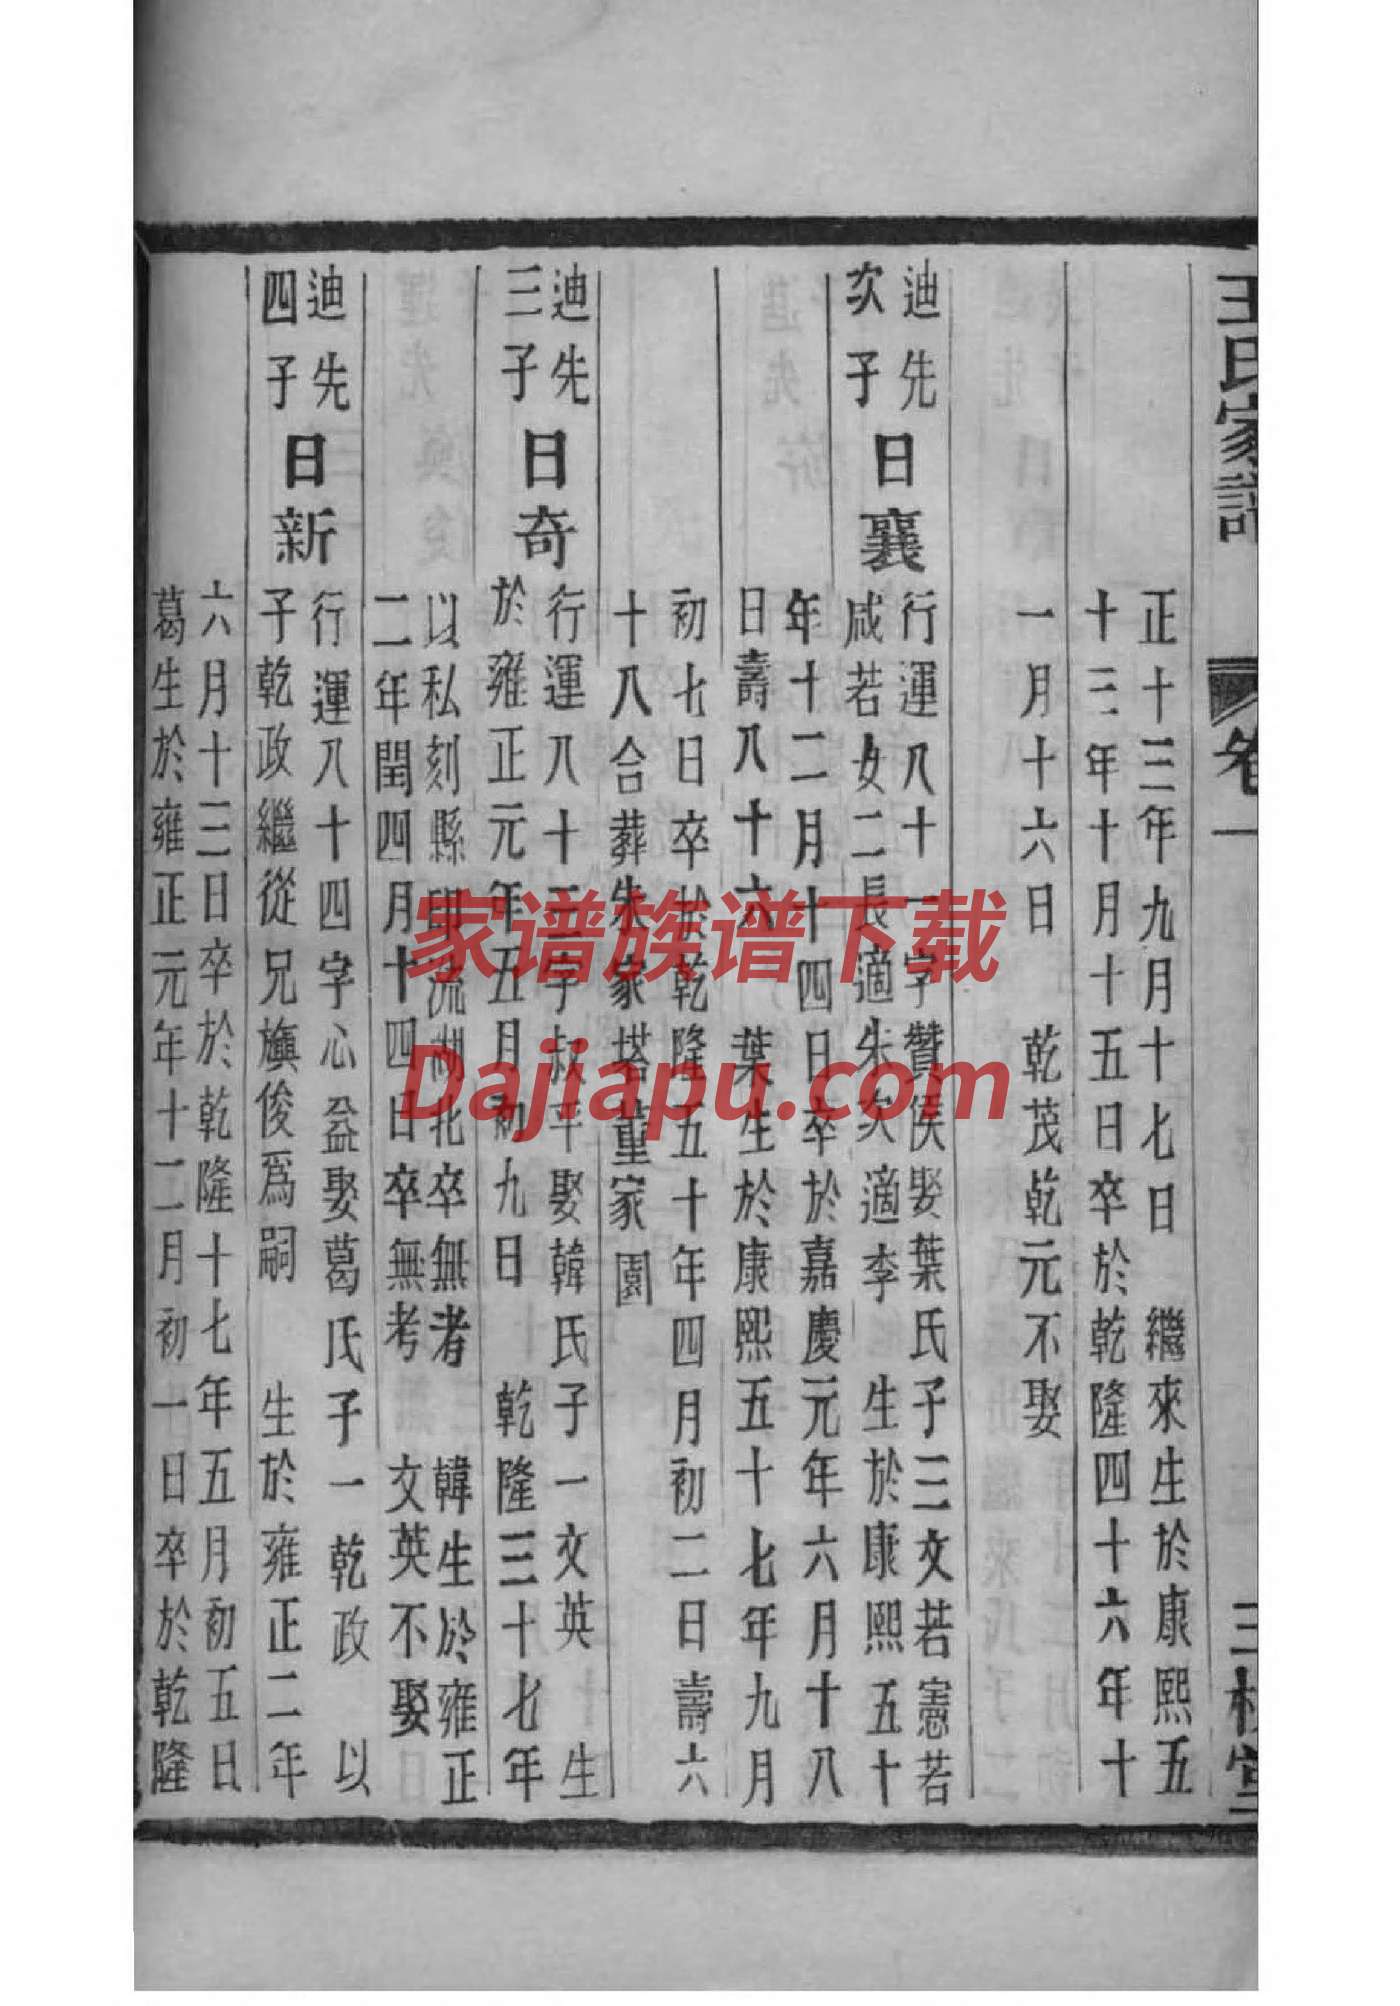 王氏家譜
卷一
三槐堂
正十三年九月十七日 繼來生於康熙五
十三年十月十五日卒於乾隆四十六年十
一月十六日 乾茂乾元不娶
迪先
次子
日襄
行運八十一字贊侯娶葉氏子三文若憲若
咸若女二長適朱次適李 生於康熙五十
年十二月十四日卒於嘉慶元年六月十八
日壽八十六 葉生於康熙五十七年九月
初七日卒於乾隆五十年四月初二日壽六
十八合葬朱家塔董家園
迪先
三子
日奇
行運八十三字叔平娶韓氏子一文英 生
於雍正元年五月初九日 乾隆三十七年
以私刻縣印流湖北卒無考 韓生於雍正
二年閏四月十四日卒無考 文英不娶
迪先
四子
日新
行運八十四字心益娶葛氏子一乾政 以
子乾政繼從兄旟俊爲嗣 生於雍正二年
六月十三日卒於乾隆十七年五月初五日
葛生於雍正元年十二月初一日卒於乾隆
家谱族谱下载
Dajiapu.com